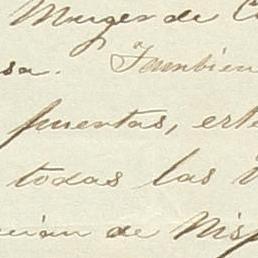 Murger de C
sa. Tambien
puertas, este
todas las
de His